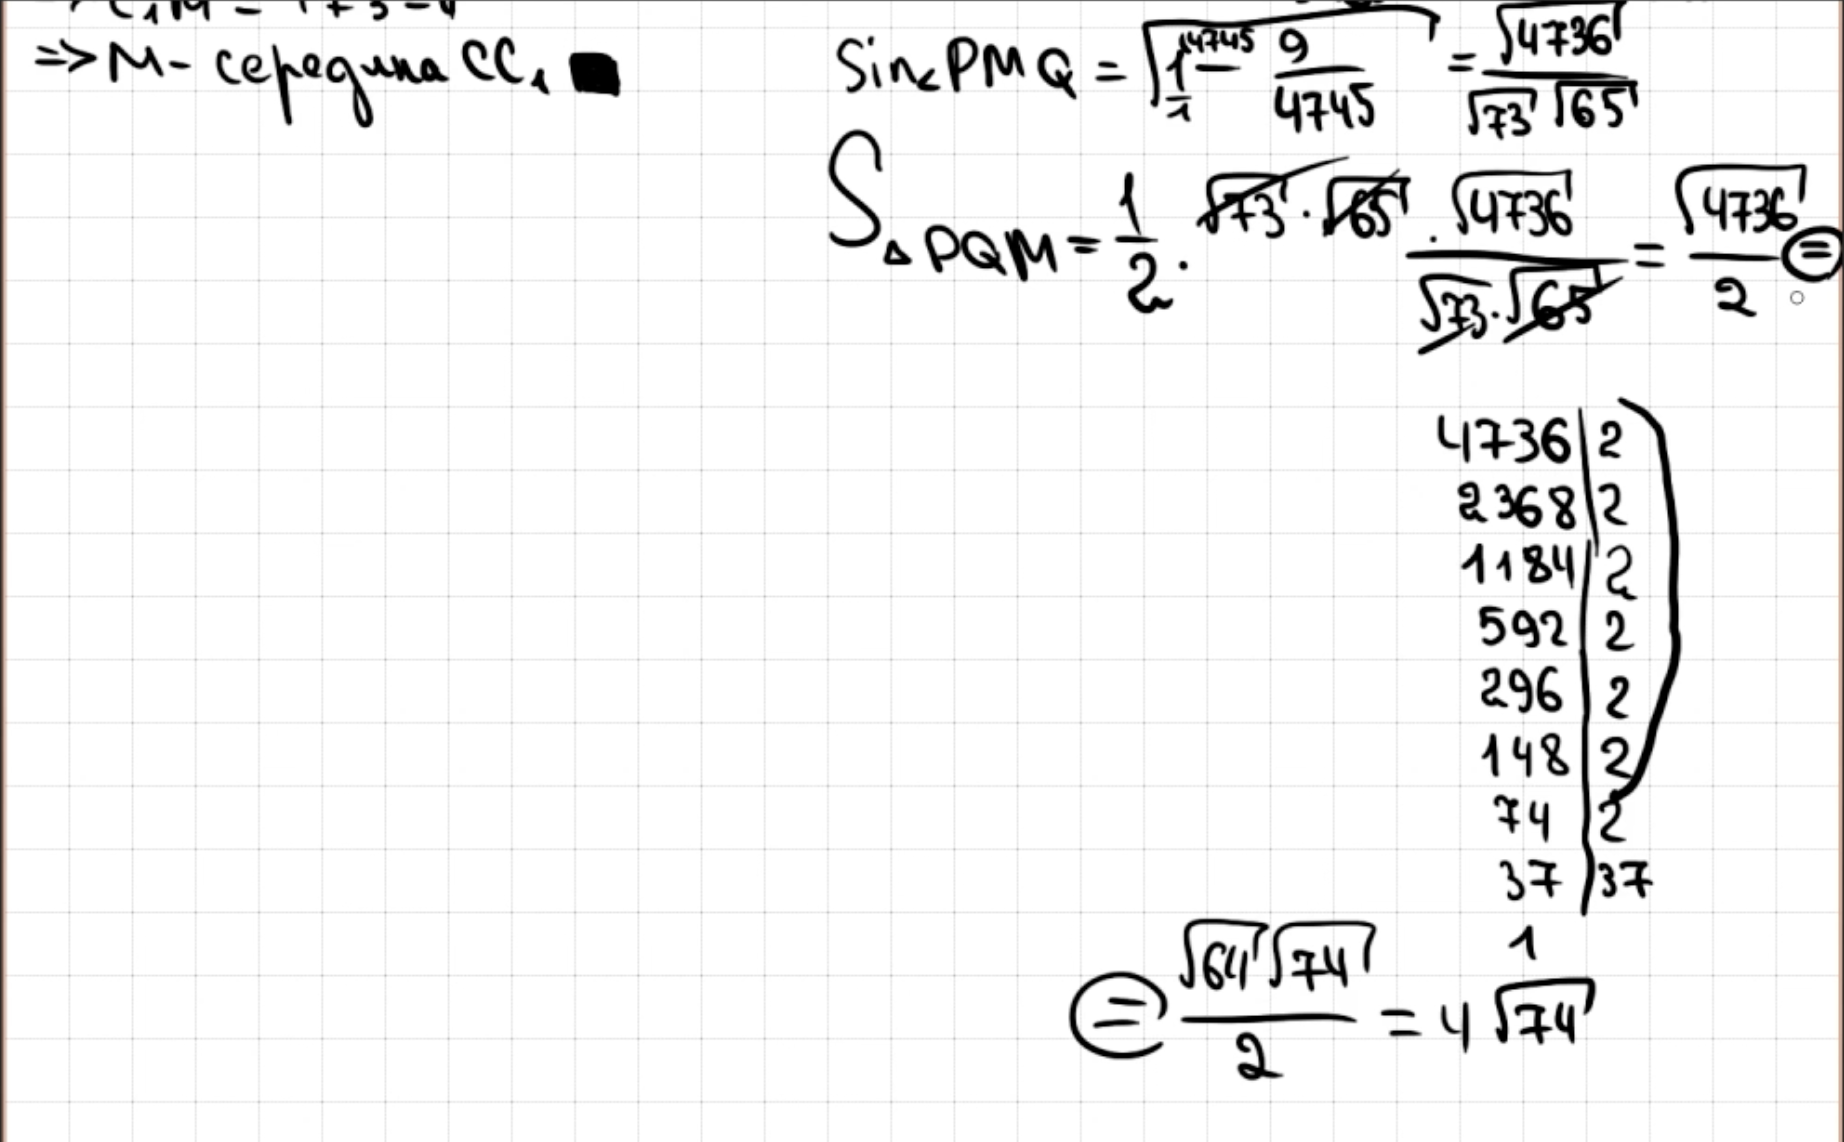 => M - середина CC₁ ■
Sin∠PMQ = √(1/1 - 9/4745) = √4736 / (√73 √65)
S△PQM = 1/2 · √73 · √65 · √4736 / (√73 · √65) = √4736 / 2 =
4736 | 2
2368 | 2
1184 | 2
592 | 2
296 | 2
148 | 2
74 | 2
37 | 37
1
= √64 √74 / 2 = 4 √74